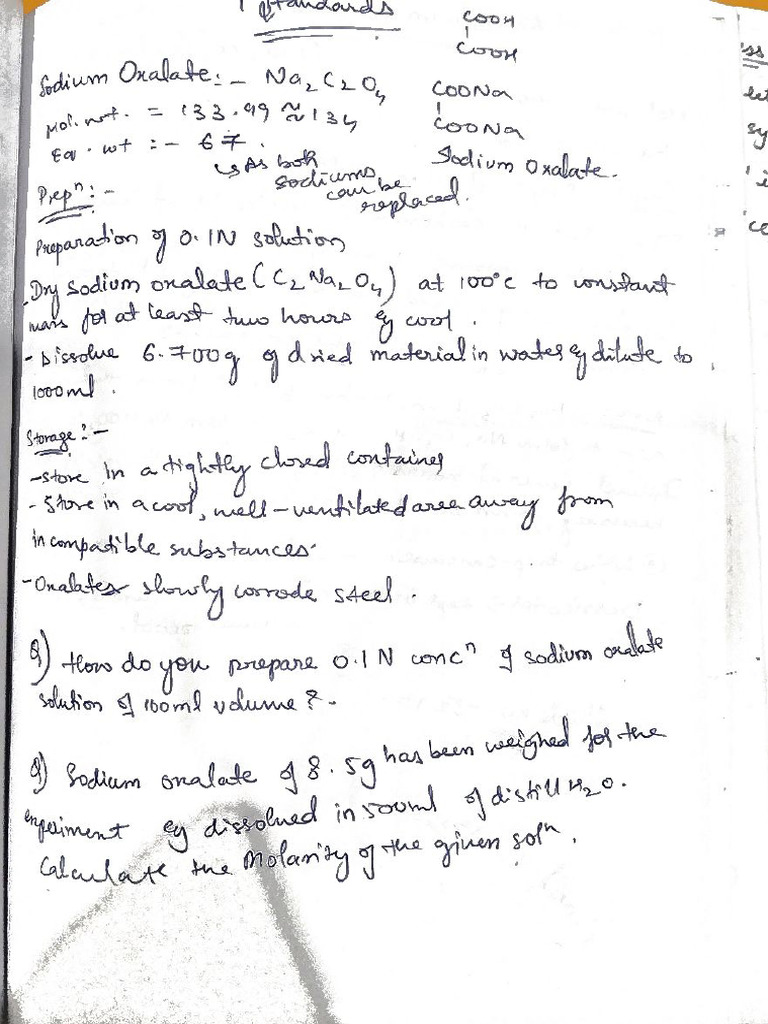 Standards
COOH
COOH
Sodium Oxalate:- Na2C2O4
COONa
COONa
Sodium Oxalate.
Mol. wt. = 133.99 ≈ 134
Eq. wt :- 67.
↳ As both sodiums can be replaced.
Prepⁿ:-
Preparation of 0.1N solution
- Dry sodium oxalate (C2Na2O4) at 100°C to constant
mass for at least two hours & cool.
- Dissolve 6.700g of dried material in water & dilute to
1000ml.
Storage:-
- Store in a tightly closed container
- Store in a cool, well-ventilated area away from
incompatible substances.
- Oxalates slowly corrode steel.
Q) How do you prepare 0.1N concⁿ of sodium oxalate
solution of 100ml volume?.
Q) Sodium oxalate of 8.5g has been weighed for the
experiment & dissolved in 500ml of distill H2O.
Calculate the Molarity of the given solⁿ.